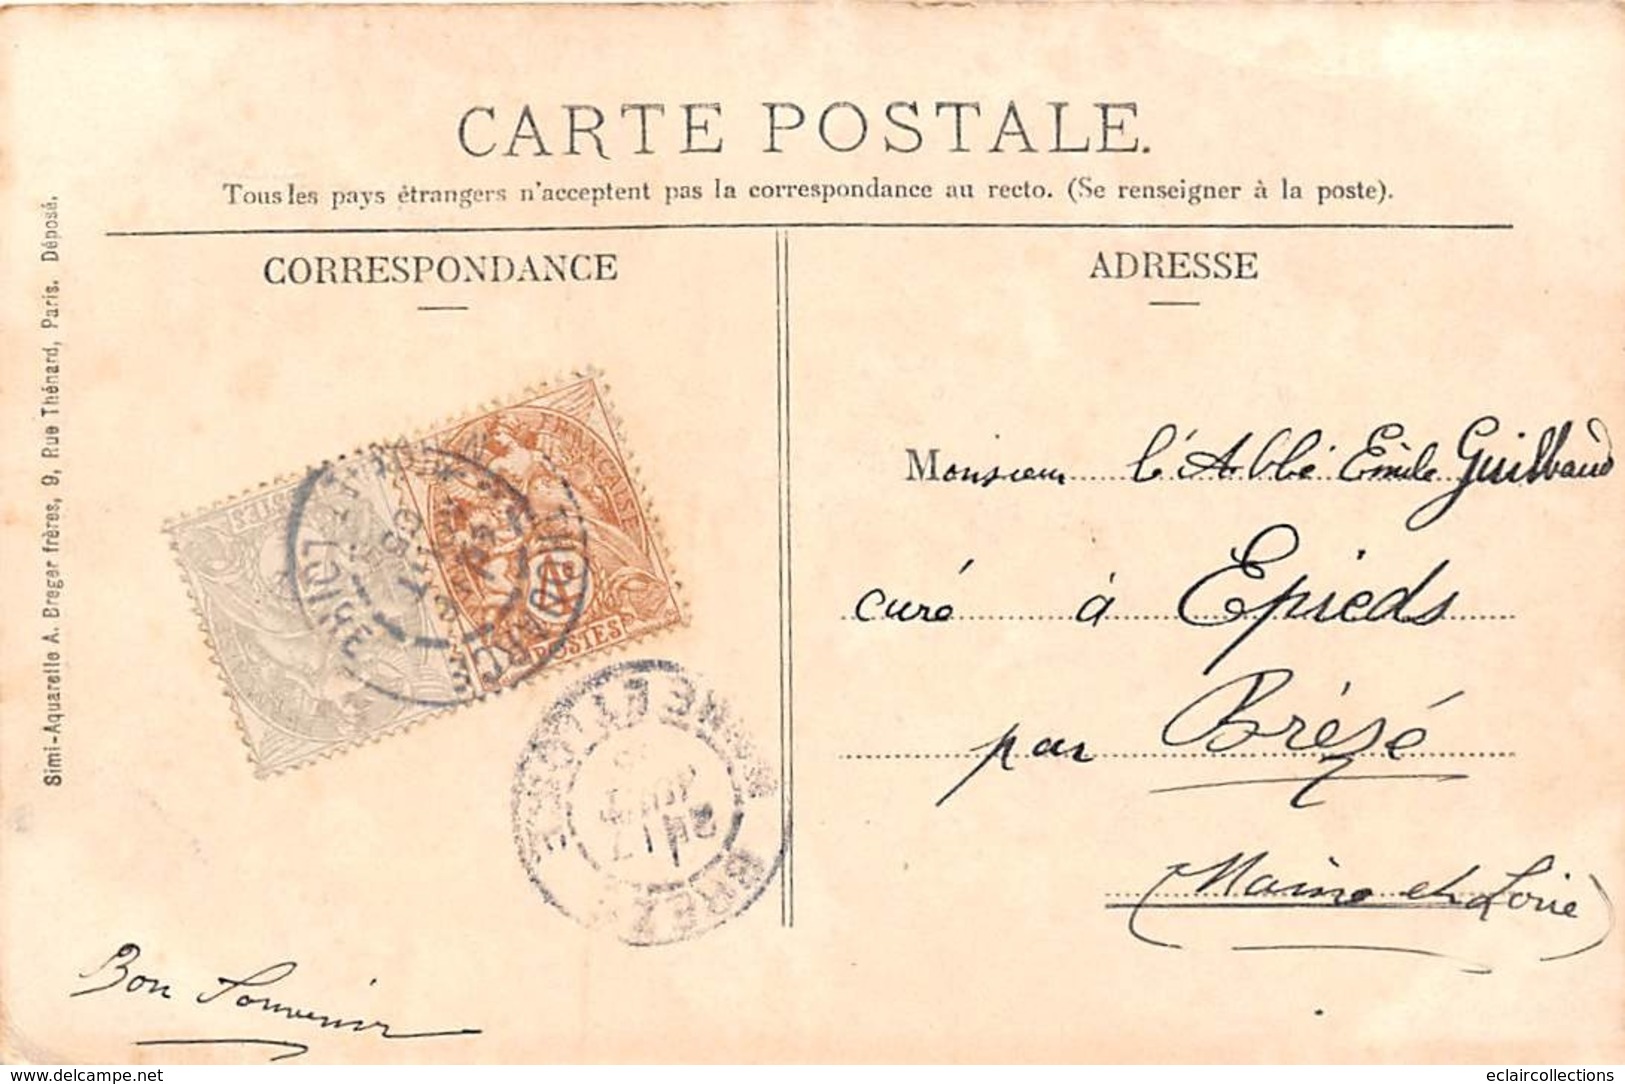 CARTE POSTALE.
Tous les pays étrangers n'acceptent pas la correspondance au recto. (Se renseigner à la poste).
Simi-Aquarelle A. Breger frères, 9, Rue Thénard, Paris. Déposé.
CORRESPONDANCE
FRANÇAISE
POSTES
POSTES
MAINE ET LOIRE
MAINE ET LOIRE
BREZÉ
Bon Souvenir
ADRESSE
Monsieur l'Abbé Emile Guilbaud
curé à Epieds
par Brézé
(Maine et Loire)
www.delcampe.net
eclaircollections